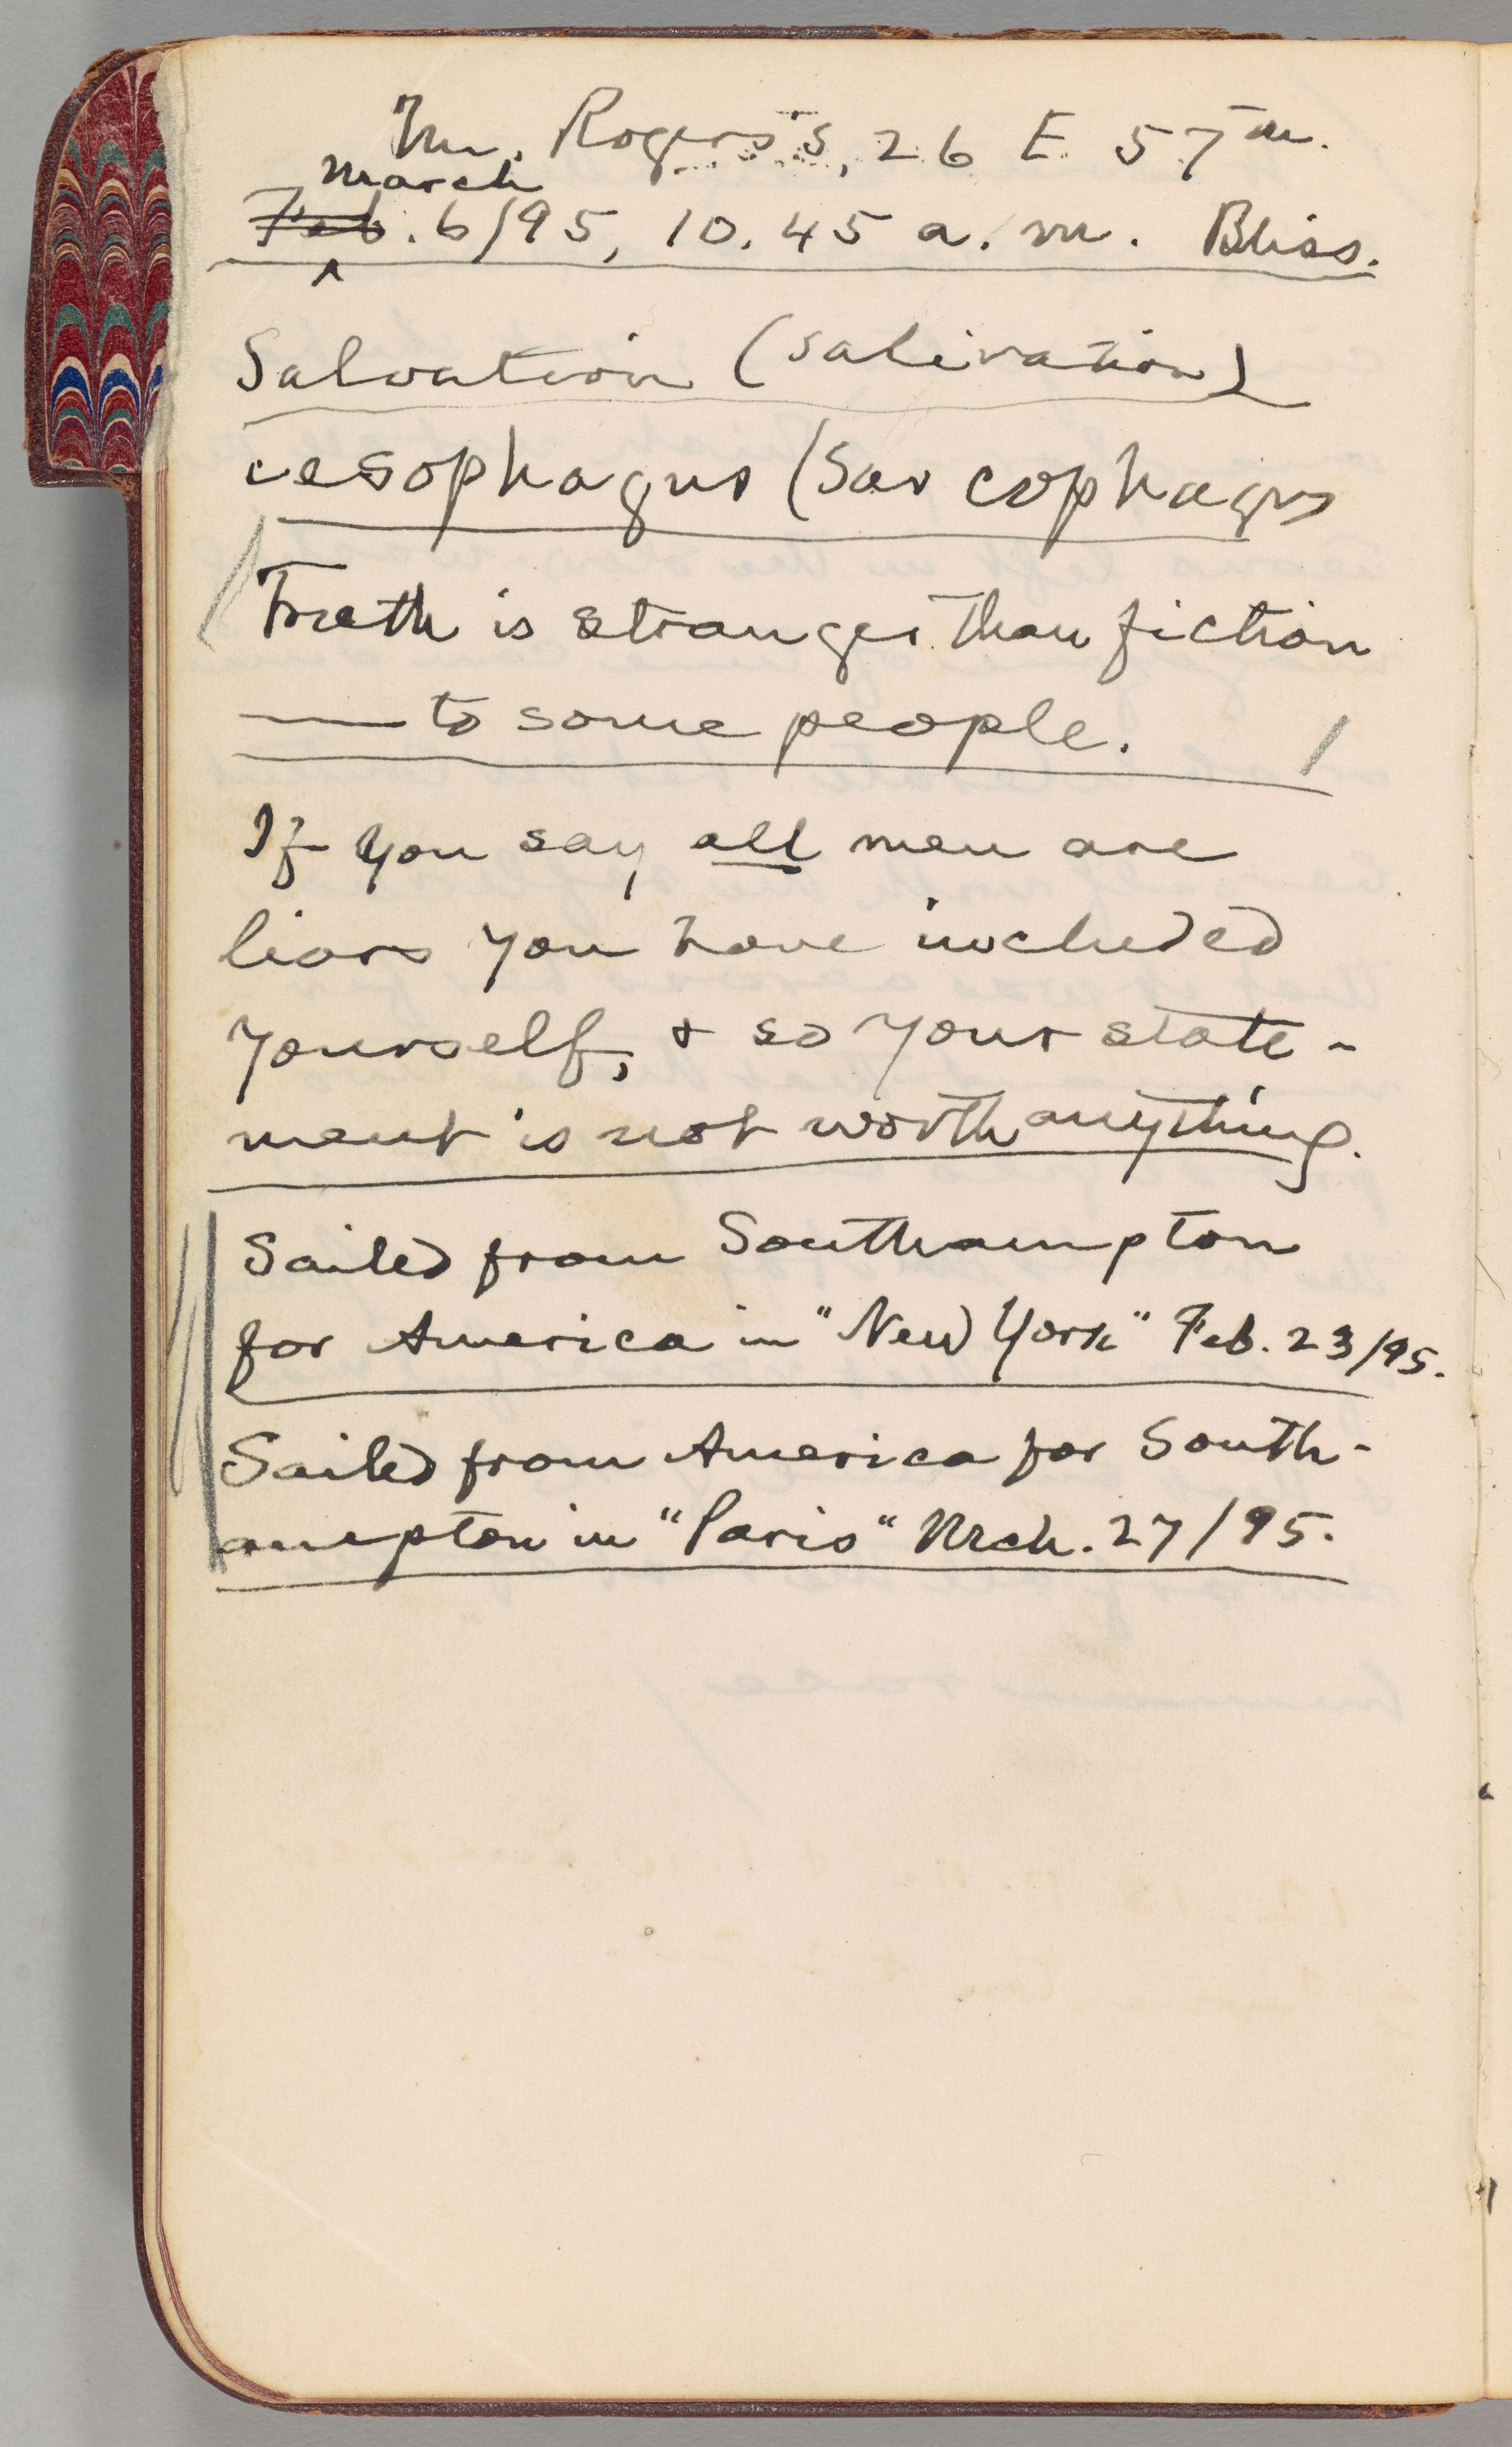 Mr. Rogers's, 26 E. 57th.
March
Feb. 6/95, 10.45 a.m. Bliss.
Salvation (salivation)
œsophagus (Sarcophagus
Truth is stranger than fiction
— to some people.
If you say all men are
liars you have included
yourself, & so your state-
ment is not worth anything.
Sailed from Southampton
for America in "New York" Feb. 23/95.
Sailed from America for South-
ampton in "Paris" Mrch. 27/95.